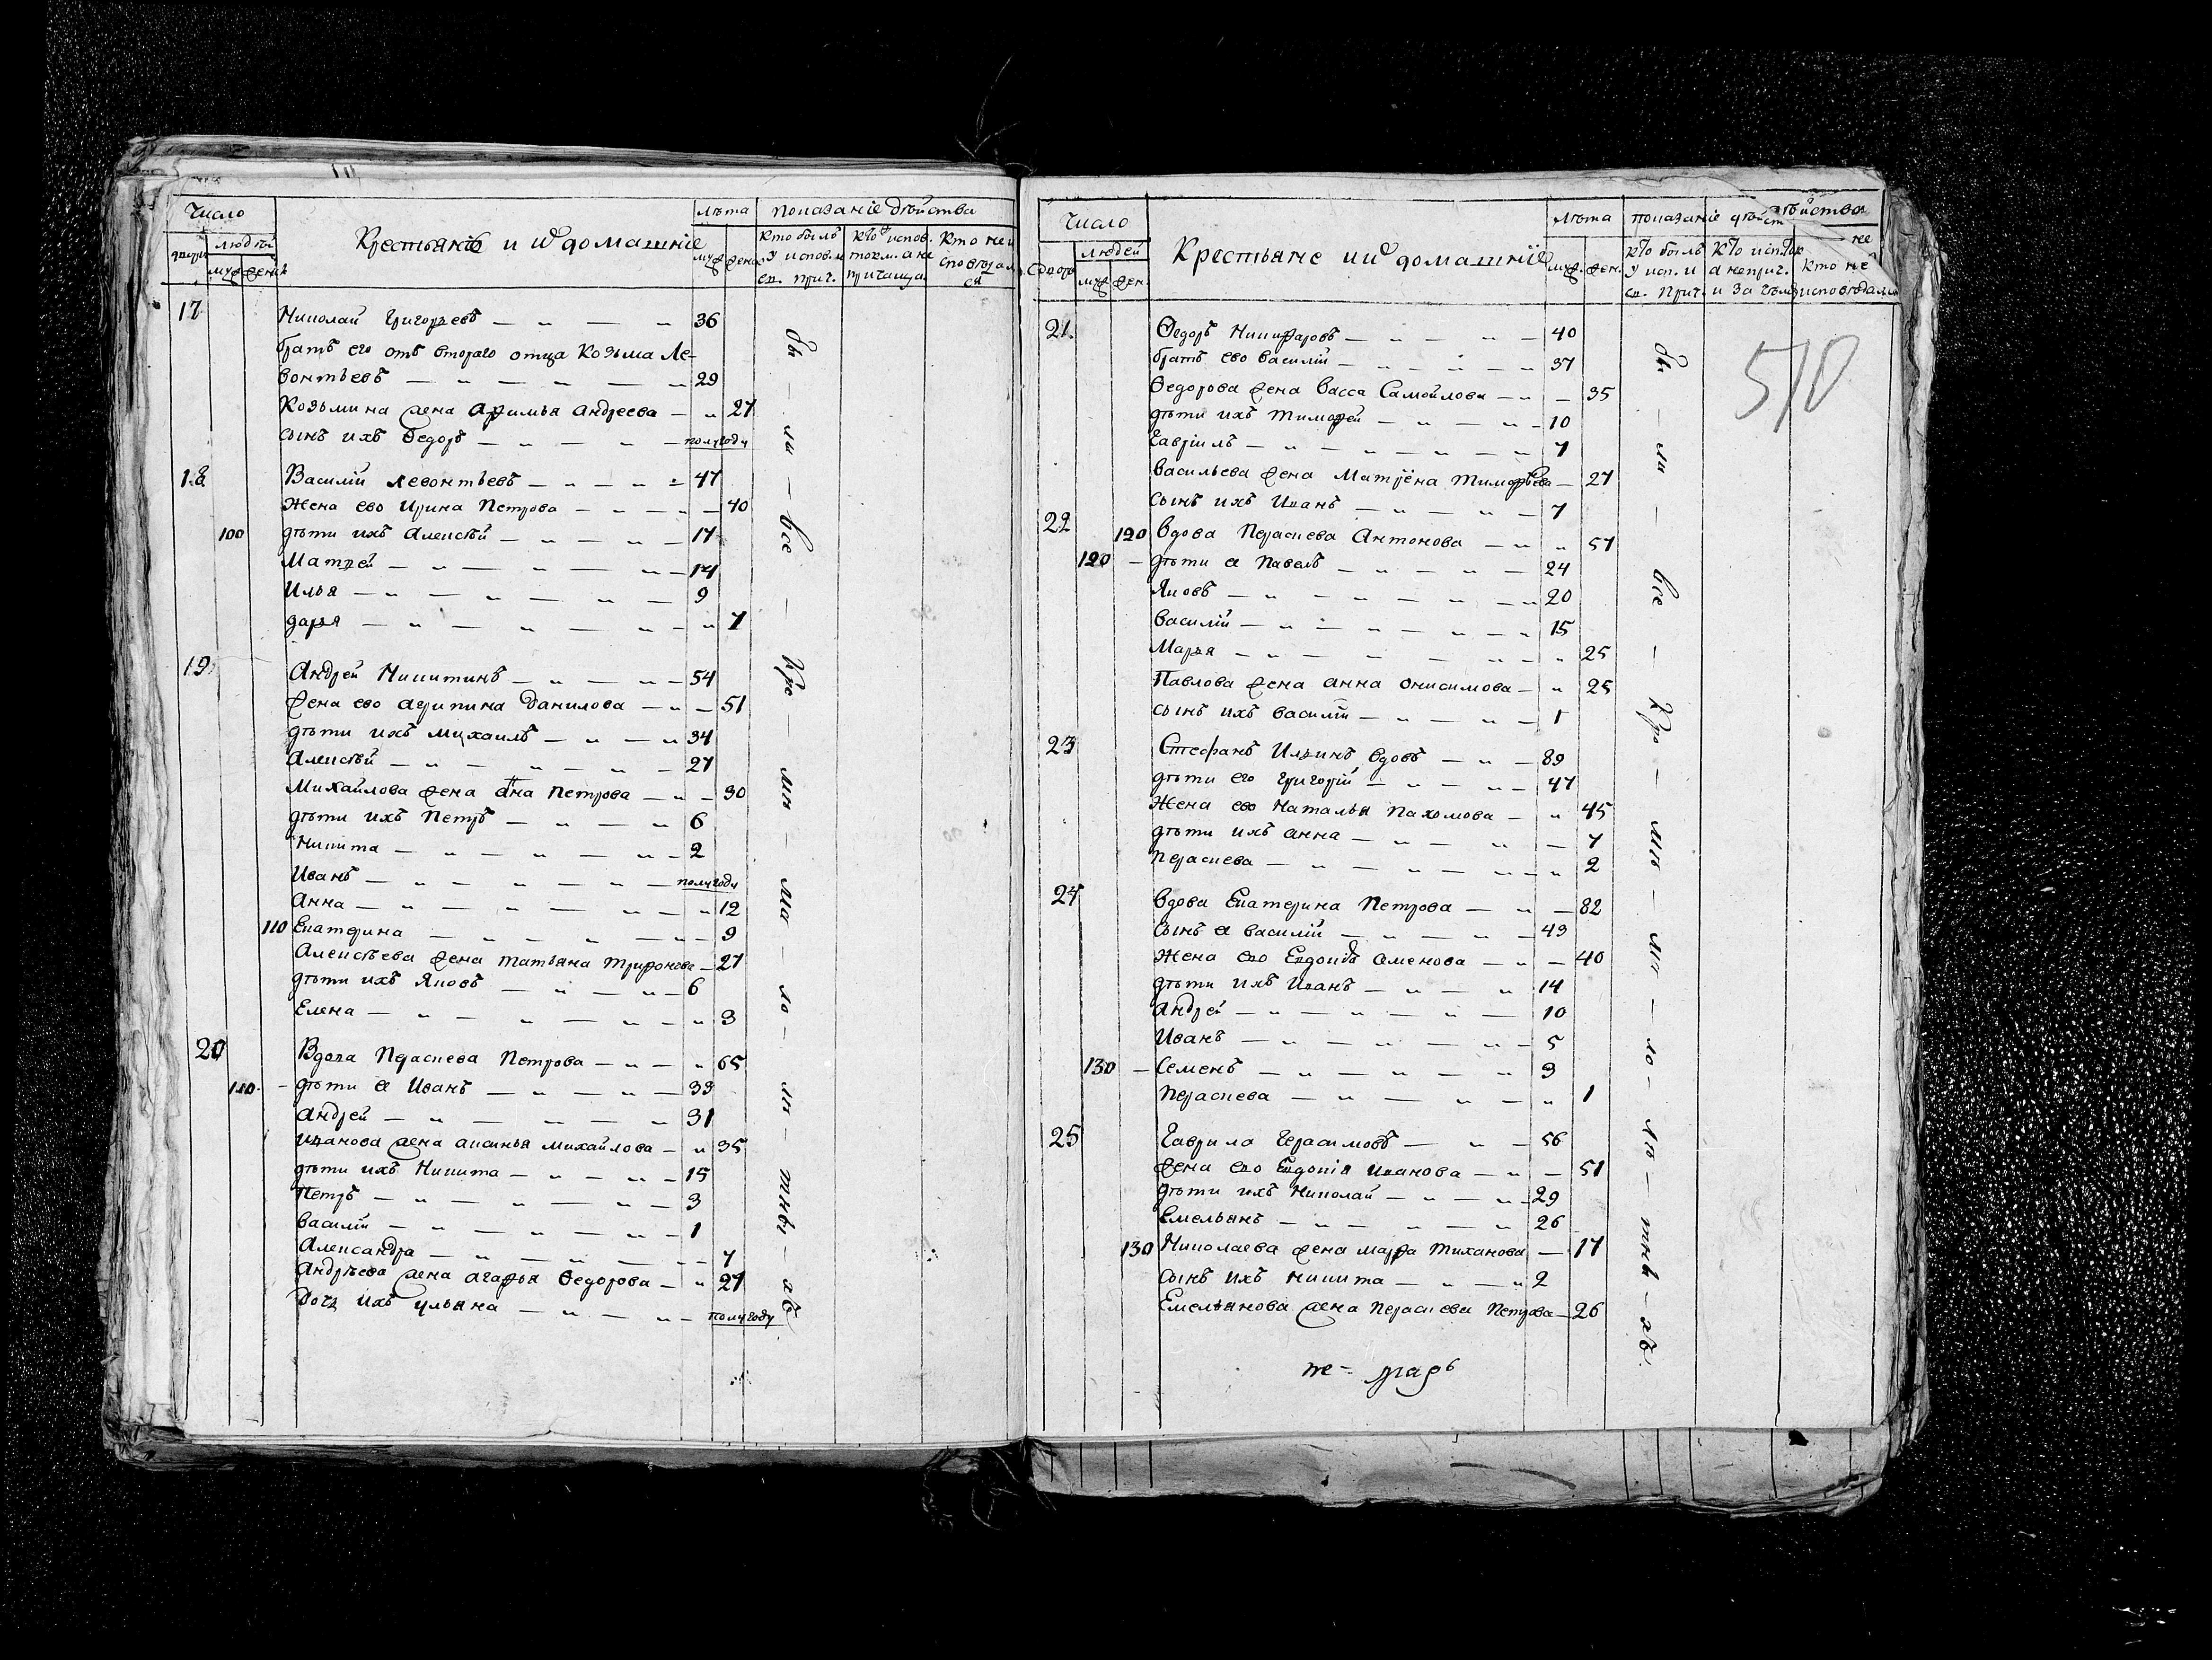 Число
людѣй
муж женск
Крестьянѣ и ихъ домашніе
лѣта
муж женс
показаніе дѣйства
кто былъ у исповѣ св. прич.
кто испов. токм. а не причаща
кто не исповѣдалъ ся
17 Николай Григорьевъ — 36
братъ его отъ втораго отца Козьма Ле-
вонтьевъ — 29
Козьмина жена Афимья Андреева — 27
сынъ ихъ Ѳедоръ — полугоду
18 Василій Левонтьевъ — 47
Жена ево Ирина Петрова — 40
100 дѣти ихъ Алексѣй — 17
Матфей — 14
Илья — 9
дарья — 7
19 Андрей Никитинъ — 54
жена ево агрипина Данилова — 51
дѣти ихъ Михаилъ — 34
Алексѣй — 27
Михайлова жена Анна Петрова — 30
дѣти ихъ Петръ — 6
Никита — 2
Иванъ — полугоду
Анна — 12
110 Екатерина — 9
Алексѣева жена татьяна трифонова — 27
дѣти ихъ Яковъ — 6
Елена — 3
20 Вдова Параскева Петрова — 65
110 дѣти ея Иванъ — 39
Андрей — 31
Иванова жена аксинья михайлова — 35
дѣти ихъ Никита — 15
Петръ — 3
василій — 1
Александра — 7
Андрѣева жена агафья Ѳедорова — 27
Дочь ихъ ульяна — полугоду
бы — ли — все —
Число
людей
муж жен.
Крестьяне и ихъ домашніе
лѣта
муж. жен.
показаніе дѣйст
дѣйства
кто былъ у исп. и св. прич.
кто исп. а неприч. и за чѣмъ
не
кто не исповѣдались
510
21. Ѳедоръ Никифаровъ — 40
братъ ево василій — 37
Ѳедорова жена Васса Самойлова — 35
дѣти ихъ тимофей — 10
Гавріилъ — 7
васильева жена Матрёна тимофѣева — 27
сынъ ихъ Иванъ — 7
22 120 вдова Параскева Антонова — 57
120 дѣти ея Павелъ — 24
Яковъ — 20
василій — 15
Марья — 25
Павлова жена анна онисимова — 25
сынъ ихъ василій — 1
23 Стефанъ Ильинъ вдовъ — 89
дѣти его григорій — 47
Жена ево Наталья Пахомова — 45
дѣти ихъ анна — 7
Параскева — 2
24 вдова Екатерина Петрова — 82
сынъ ея василій — 49
Жена ево Евдокія Семенова — 40
дѣти ихъ Иванъ — 14
андрей — 10
Иванъ — 5
130 Семенъ — 3
Параскева — 1
25 Гаврила Герасимовъ — 56
жена ево Евдокія Иванова — 51
дѣти ихъ Николай — 29
Емельянъ — 26
130 Николаева жена марфа тиханова — 17
сынъ ихъ никита — 2
Емельянова жена Параскева Петрова — 26
бы — ли — все —